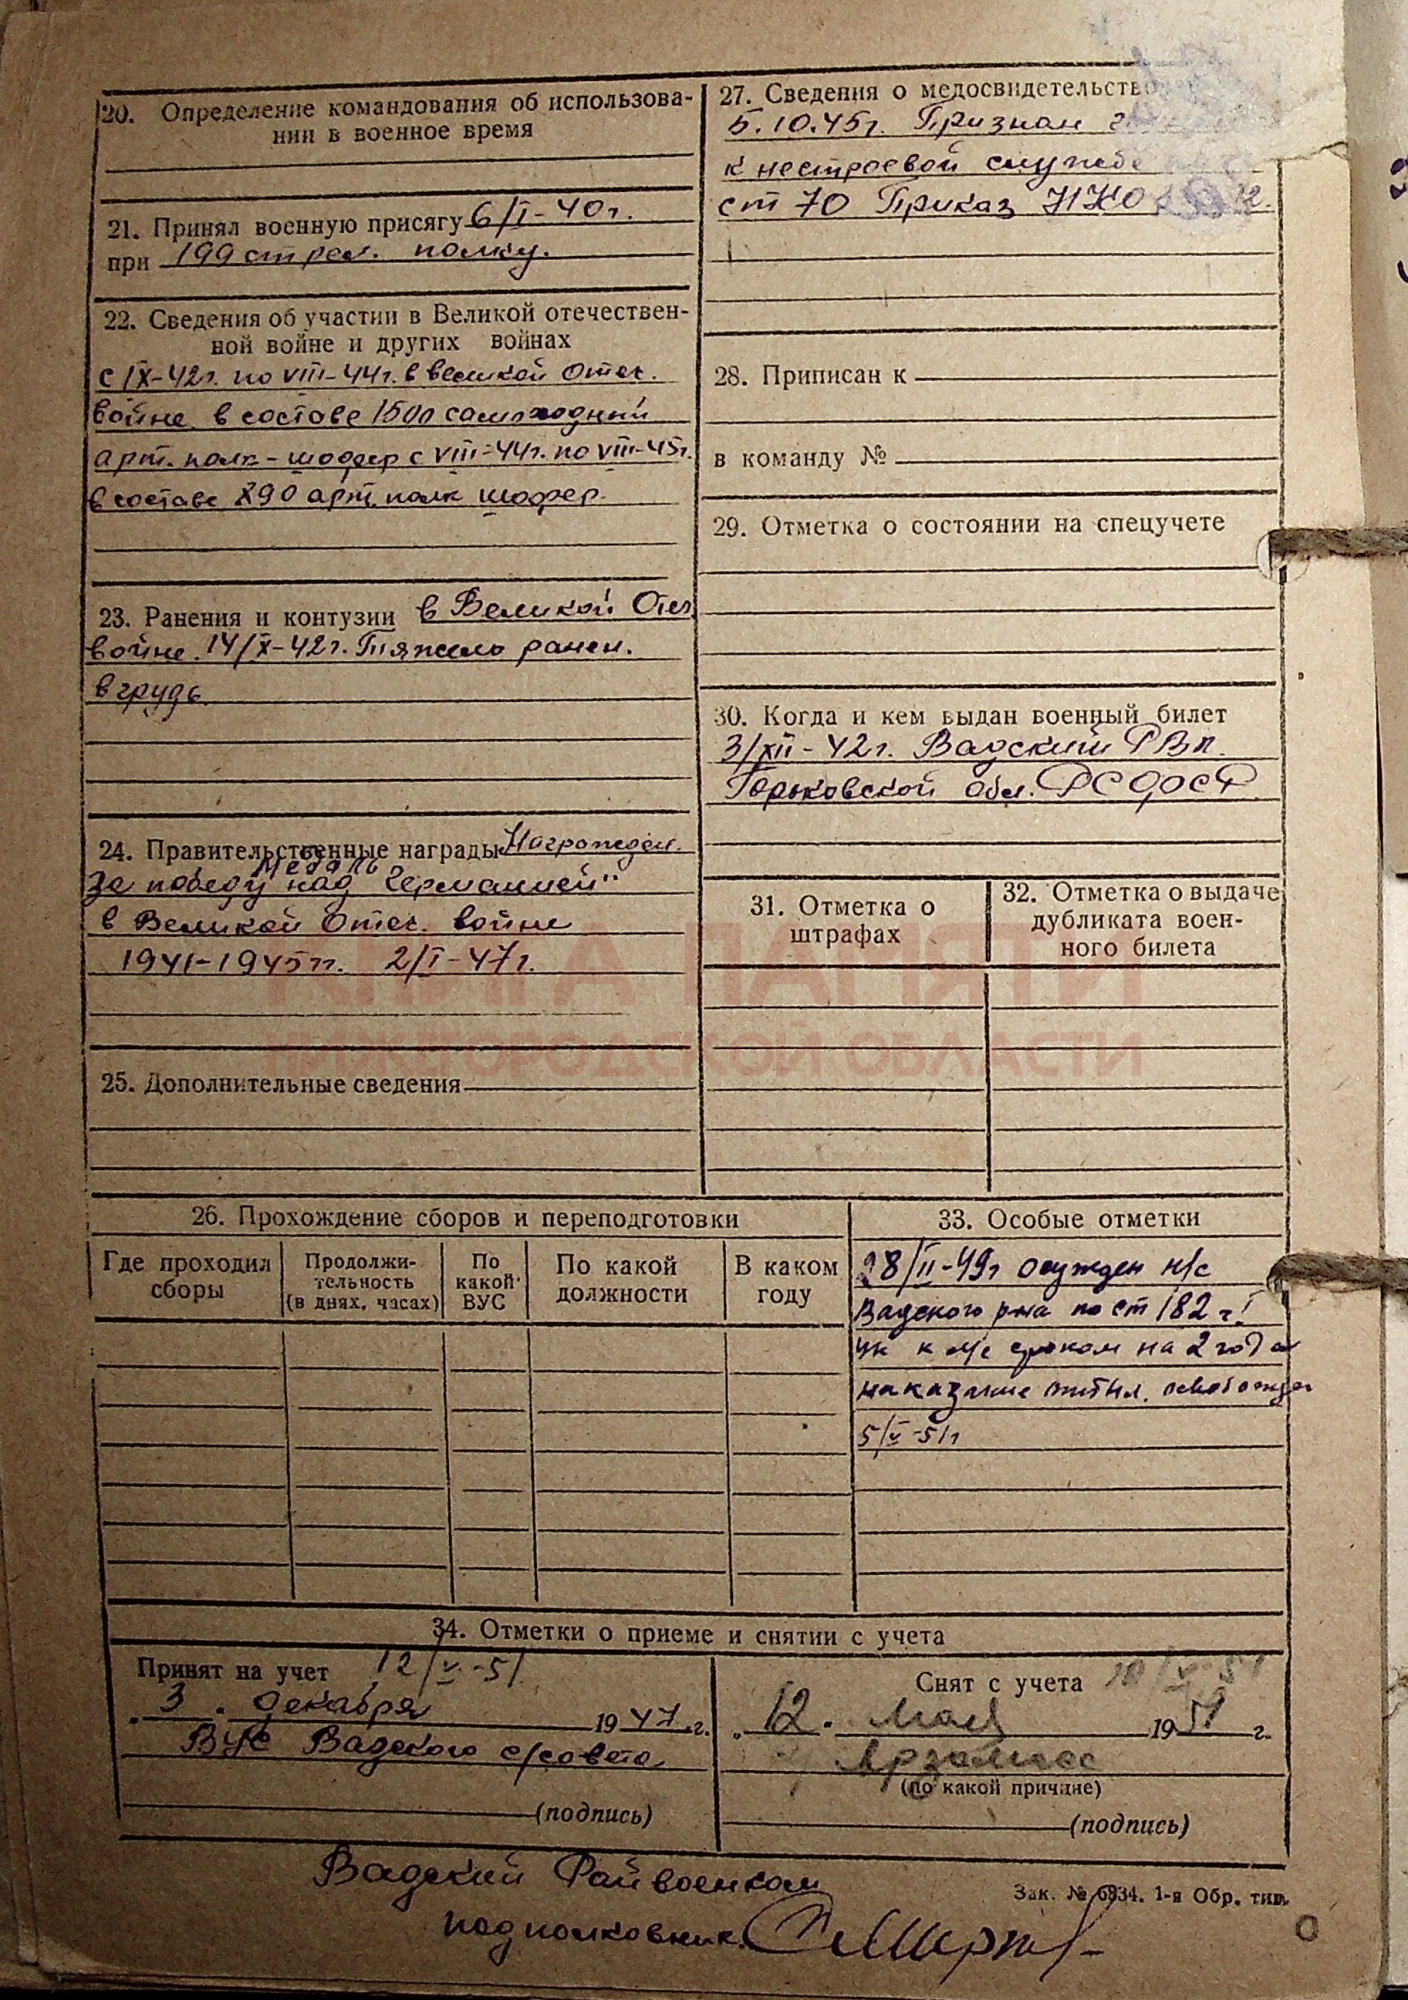 20. Определение командования об использова-
нии в военное время
21. Принял военную присягу 6/I-40г.
при 199 стрел. полку.
22. Сведения об участии в Великой отечествен-
ной войне и других войнах
с IX-42г. по VIII-44г. в великой Отеч.
войне в составе 1501 самоходный
арт. полк-шофер с VIII-44г. по VIII-45г.
в составе 890 арт. полк шофер.
23. Ранения и контузии в Великой Отеч
войне. 14/X-42г. Тяжело ранен.
в грудь.
24. Правительственные награды Награжден.
Медаль
За победу над Германией"
в Великой Отеч. войне
1941-1945гг. 2/I-47г.
25. Дополнительные сведения
27. Сведения о медосвидетельство
5.10.45г. Признан
к нестроевой службе
ст 70 Приказ НКО
28. Приписан к
в команду №
29. Отметка о состоянии на спецучете
30. Когда и кем выдан военный билет
3/XII-42г. Вадский РВК.
Горьковской обл. РСФСР
31. Отметка о
штрафах
32. Отметка о выдаче
дубликата воен-
ного билета
КНИГА ПАМЯТИ
НИЖЕГОРОДСКОЙ ОБЛАСТИ
26. Прохождение сборов и переподготовки
Где проходил
сборы
Продолжи-
тельность
(в днях, часах)
По
какой
ВУС
По какой
должности
В каком
году
33. Особые отметки
28/II-49г осужден н/с
Вадского р-на по ст 182 ч I
УК к л/с сроком на 2 года
наказание отбыл. освобожден
5/V-51г
34. Отметки о приеме и снятии с учета
Принят на учет 12/V-51
"3" декабря 1947 г.
ВУС Вадского с/совета
(подпись)
Снят с учета 10/V-51
"12" мая 1951 г.
Арзамас
(по какой причине)
(подпись)
Вадский Райвоенком
подполковник
Зак. № 6834. 1-я Обр. тип.